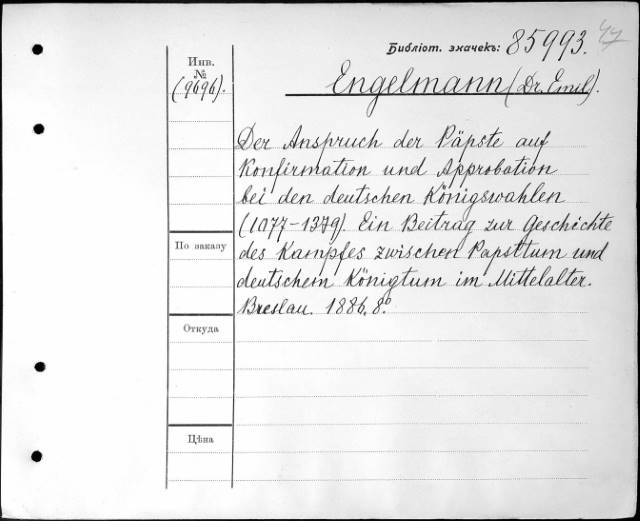 Библіот. значекъ: 85993.
47
Инв.
№
(9696).
Engelmann (Dr. Emil).
Der Anspruch der Päpste auf
Konfirmation und Approbation
bei den deutschen Königswahlen
(1077–1379). Ein Beitrag zur Geschichte
des Kampfes zwischen Papsttum und
deutschem Königtum im Mittelalter.
Breslau. 1886. 8.º
По заказу
Откуда
Цѣна